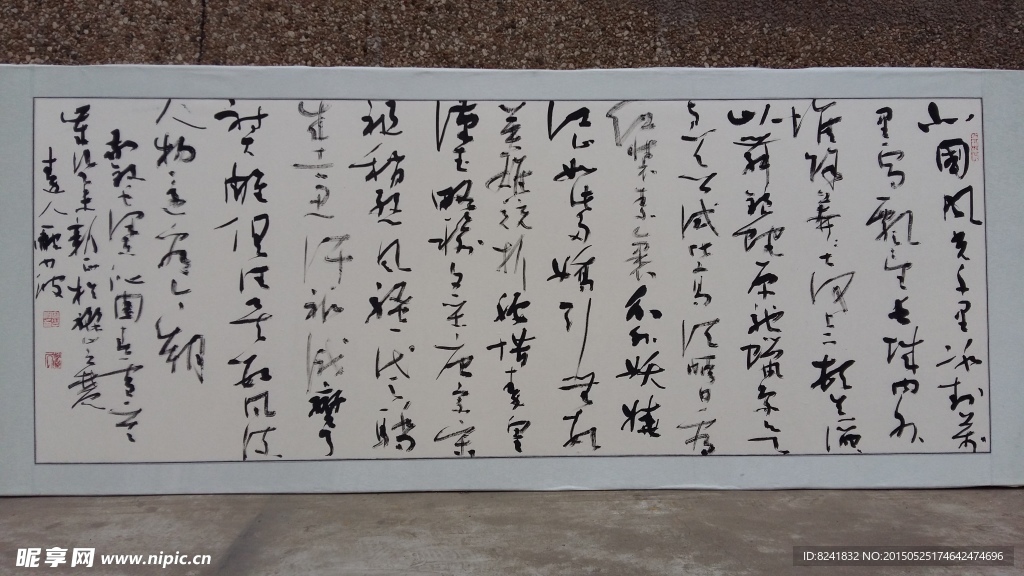 北國风光千里冰封万
里雪飘望长城内外
惟馀莽莽大河上下顿失滔
滔山舞银蛇原驰蜡象欲
与天公试比高须晴日看
红装素裹分外妖娆
江山如此多娇引无数
英雄竞折腰惜秦皇
汉武略输文采唐宗宋
祖稍逊风骚一代天骄
成吉思汗只识弯弓
射大雕俱往矣数风流
人物还看今朝
毛泽东沁园春雪
昵享网 www.nipic.cn
ID:8241832 NO:20150525174642474696